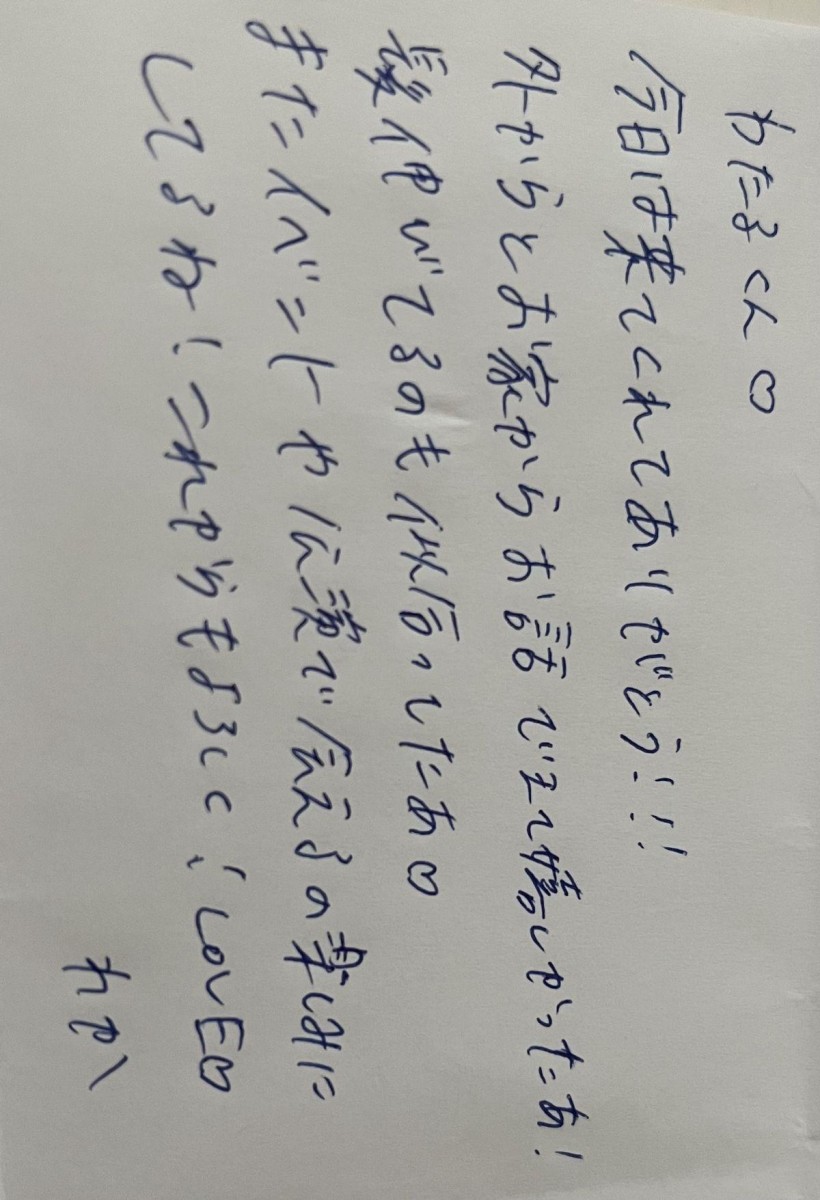 わたるくん♡
今日は来てくれてありがとう!!!
外からとお家からお話できて嬉しかったあ!
髪伸びてるのも似合ってたあ♡
またイベントや応援で会えるの楽しみに
してるね!これからもよろしく!LOVE♡
わか